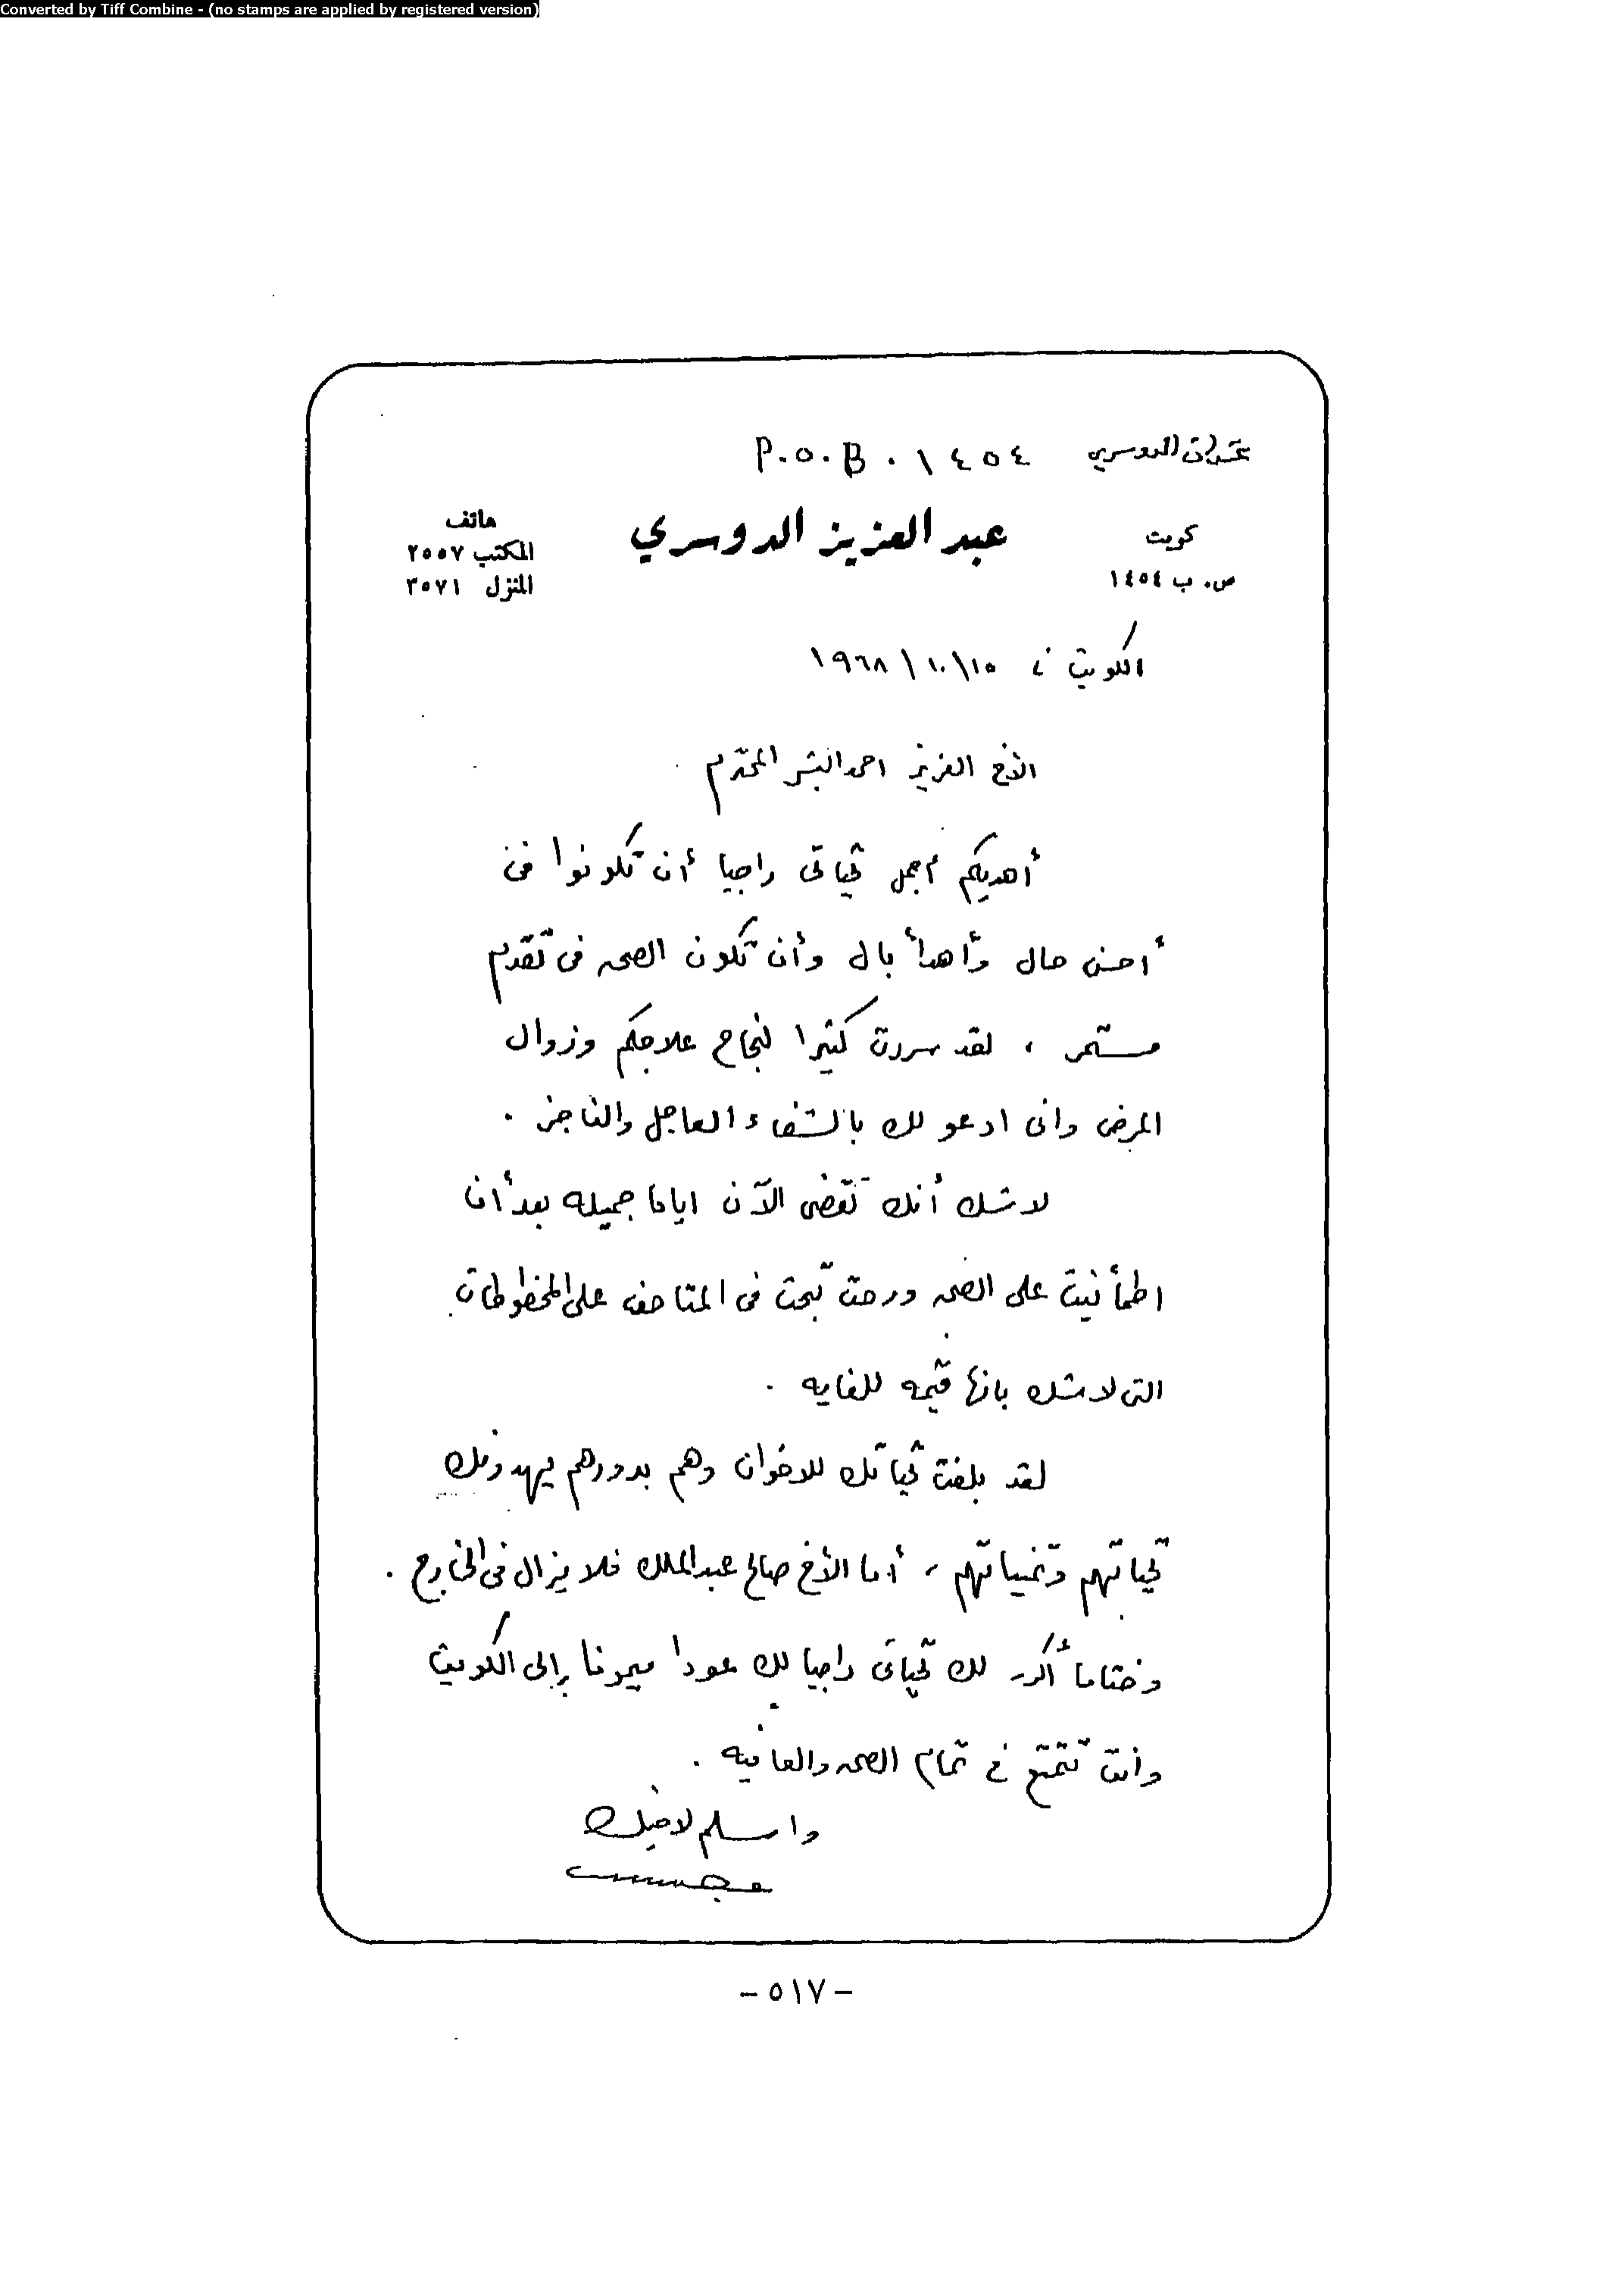 Converted by Tiff Combine - (no stamps are applied by registered version)
الدوسري P.O.B. ١٤٥٤
كويت
ص. ب ١٤٥٤
عبد العزيز الدوسري
هاتف
المكتب ٢٥٥٧
المنزل ٣٥٧١
الكويت ، ١٥/١٠/١٩٦٨
الأخ العزيز احمد البشر المحترم
أهديكم أجمل تحياتى راجيا أن تكونوا فى
أحسن حال وأهدأ بال وأن تكون الصحه فى تقدم
مستمر ، لقد سررت كثيرا لنجاح علاجكم وزوال
المرض وانى ادعو لك بالشفاء العاجل والناجز .
لا شك أنك تقضى الآن اياما جميله بعد أن
اطمأنيت على الصحه ورحت تبحث فى المتاحف على المخطوطات
التى لا شك بانها قيمه للغايه .
لقد بلغت تحياتك للاخوان وهم بدورهم يهدونك
تحياتهم وتمنياتهم ، أما الأخ صالح عبد الملك فلا يزال فى الخارج .
وختاما أكرر لك تحياتى راجيا لك عودا ميمونا إلى الكويت
وانت تتمتع فى تمام الصحه والعافيه .
واسلم لاخيك
-٥١٧-